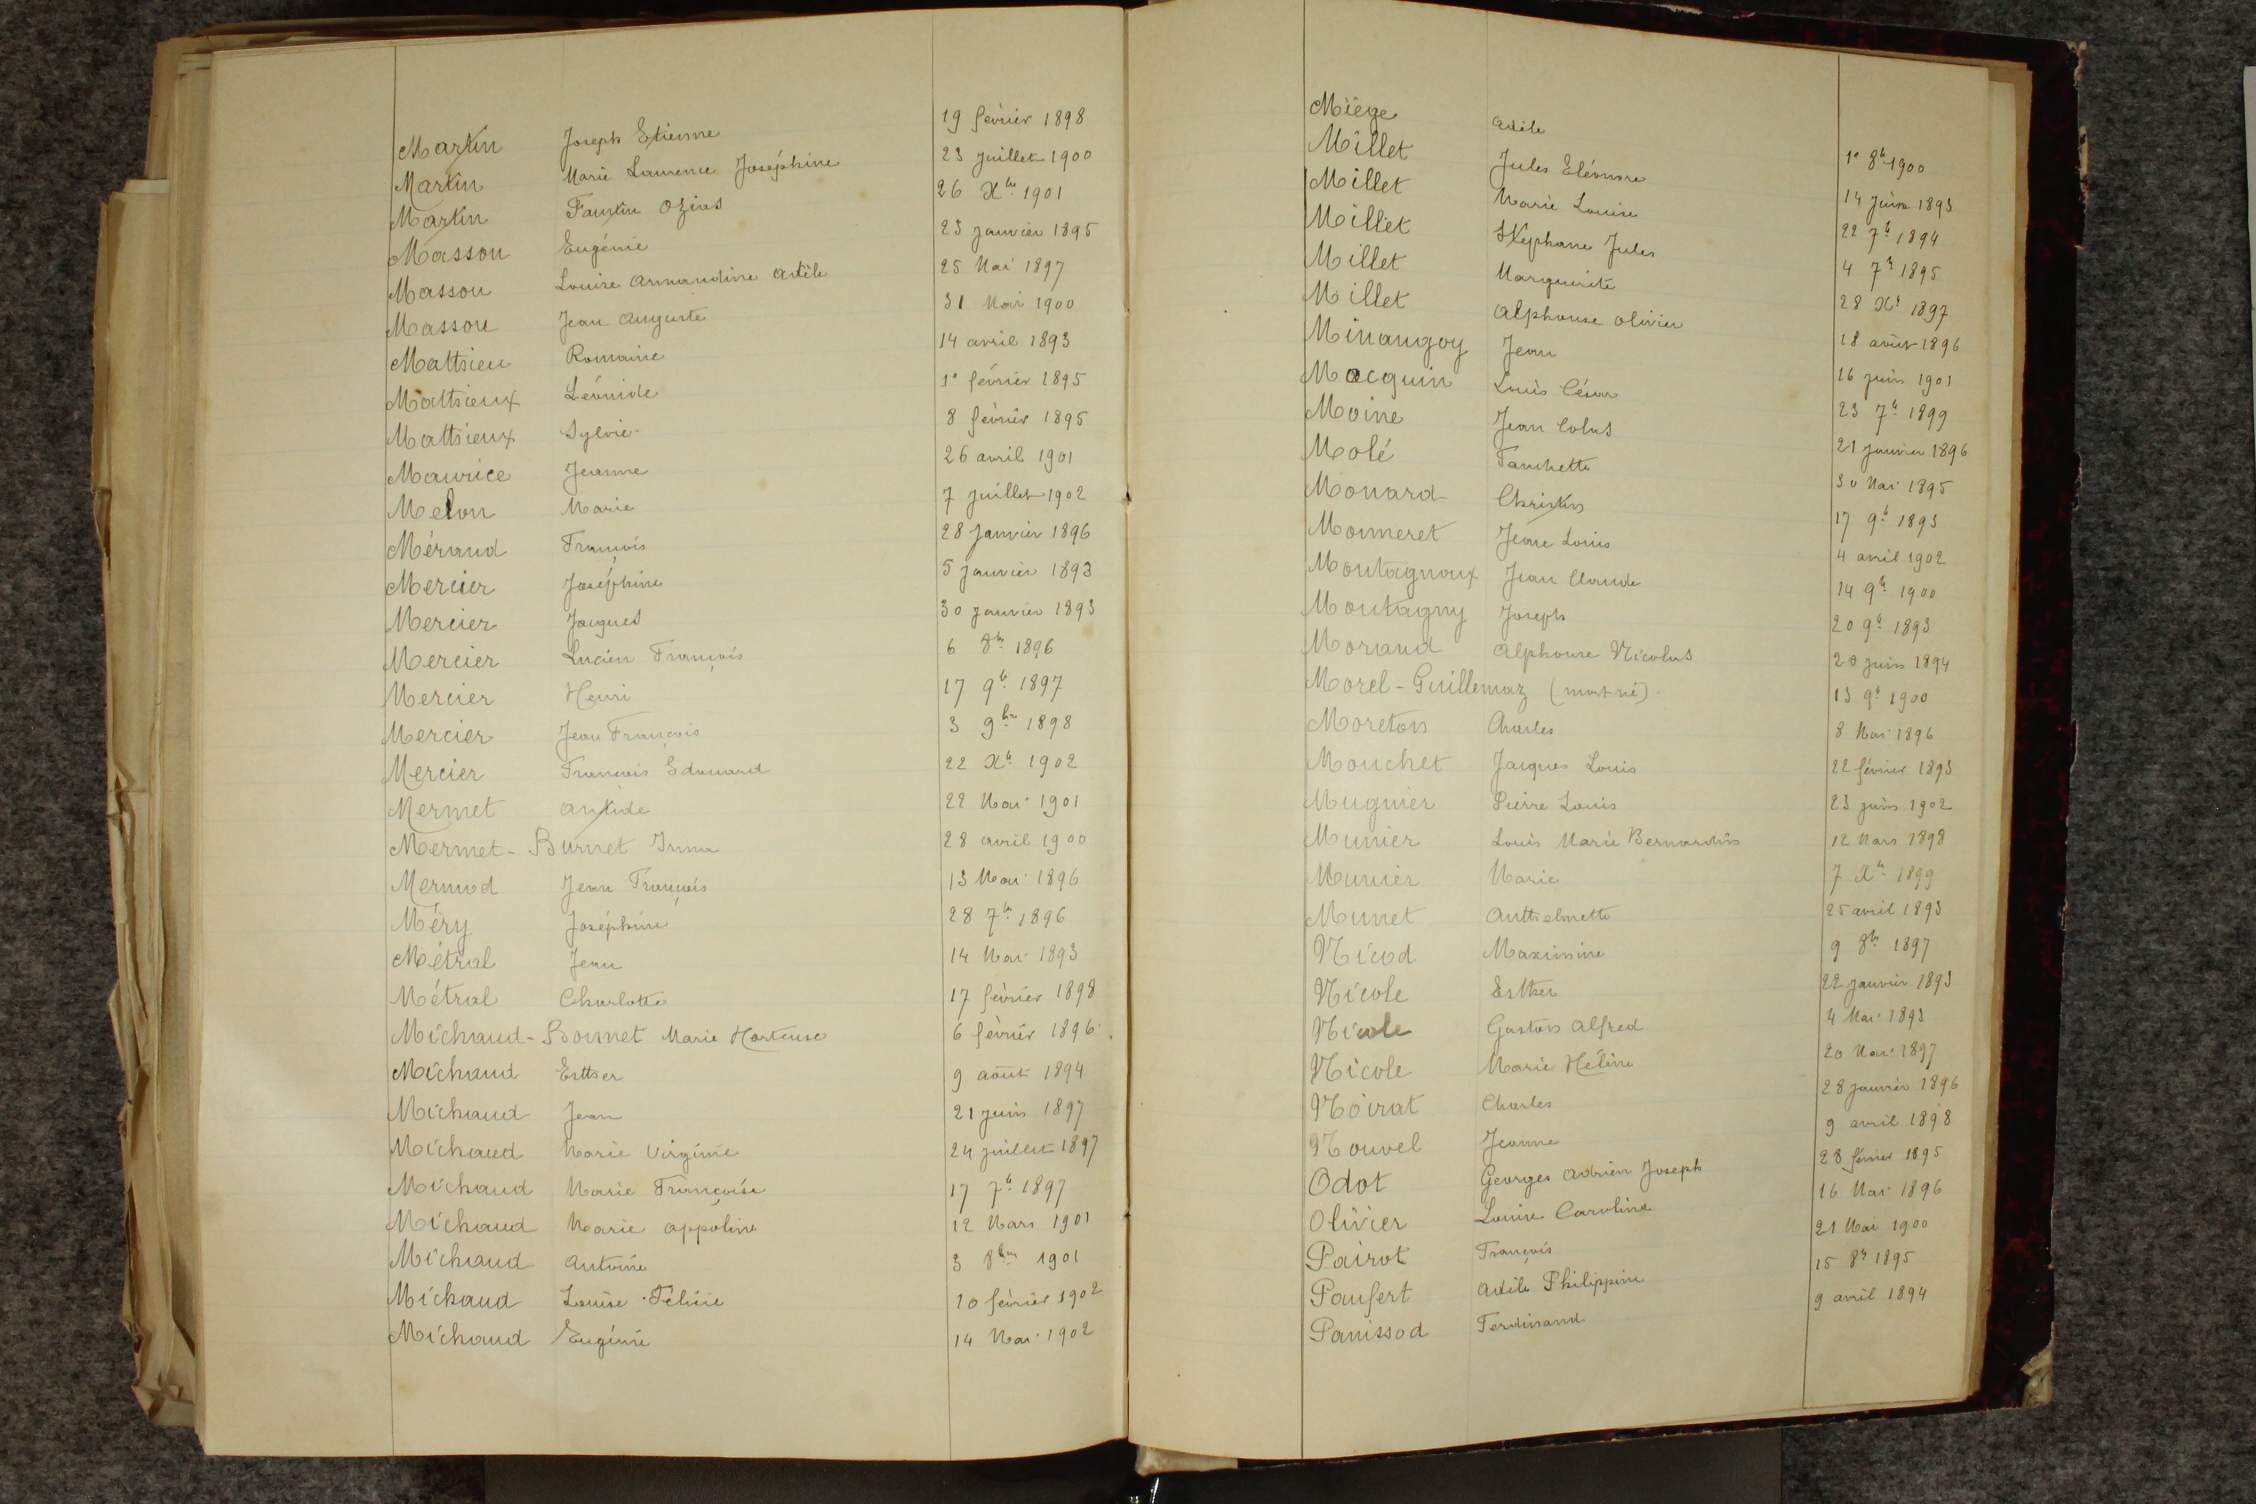 Martin Joseph Etienne 19 février 1898
Martin Marie Laurence Joséphine 23 juillet 1900
Martin Faustin Ozias 26 Xbre 1901
Masson Eugénie 23 janvier 1895
Masson Louise Armandine Adèle 25 Mai 1897
Masson Jean Auguste 31 Mai 1900
Mathieu Romaine 14 avril 1893
Mathieux Léonide 1er février 1895
Mathieux Sylvie 8 février 1895
Maurice Jeanne 26 avril 1901
Melon Marie 7 juillet 1902
Méraud François 28 janvier 1896
Mercier Joséphine 5 janvier 1893
Mercier Jacques 30 janvier 1893
Mercier Lucien François 6 8bre 1896
Mercier Henri 17 9b 1897
Mercier Jean François 3 9bre 1898
Mercier François Edouard 22 Xb 1902
Mermet Antide 22 Mai 1901
Mermet-Burnet Irma 28 avril 1900
Mermod Jean François 13 Mai 1896
Méry Joséphine 28 7b 1896
Métral Jean 14 Mai 1893
Métral Charlotte 17 février 1898
Michaud-Bonnet Marie Hortense 6 février 1896
Michaud Esther 9 août 1894
Michaud Jean 21 juin 1897
Michaud Marie Virginie 24 juillet 1897
Michaud Marie Françoise 17 7b 1897
Michaud Marie Appoline 12 Mars 1901
Michaud Antoine 3 8bre 1901
Michaud Louise Félicie 10 février 1902
Michaud Eugénie 14 Mai 1902
Miège Adèle 1er 8b 1900
Millet Jules Eléonore 14 juin 1893
Millet Marie Louise 22 7b 1894
Millet Stéphane Jules 4 7b 1895
Millet Marguerite 28 Xb 1897
Millet Alphonse Olivier 18 août 1896
Minangoy Jean 16 juin 1901
Macquin Louis César 23 7b 1899
Moine Jean Colas 21 janvier 1896
Molé Fanchette 30 Mai 1895
Monard Christin 17 9b 1893
Monneret Jean Louis 4 avril 1902
Montagnoux Jean Claude 14 9b 1900
Montagny Joseph 20 9b 1893
Morand Alphonse Nicolas 20 juin 1894
Morel-Guillemaz (mort né) 13 9b 1900
Moreton Charles 8 Mai 1896
Mouchet Jacques Louis 22 février 1893
Mugnier Pierre Louis 23 juin 1902
Munier Louis Marie Bernardin 12 Mars 1898
Munier Marie 7 Xb 1899
Munet Anthelmette 25 avril 1893
Nicod Maximine 9 8b 1897
Nicole Esther 22 janvier 1893
Nicole Gaston Alfred 4 Mai 1893
Nicole Marie Hélène 20 Mai 1897
Noirat Charles 28 janvier 1896
Nouvel Jeanne 9 avril 1898
Odot Georges Adrien Joseph 28 février 1895
Olivier Louise Caroline 16 Mai 1896
Pairot François 21 Mai 1900
Panfert Adèle Philippine 15 8b 1895
Panissod Ferdinand 9 avril 1894